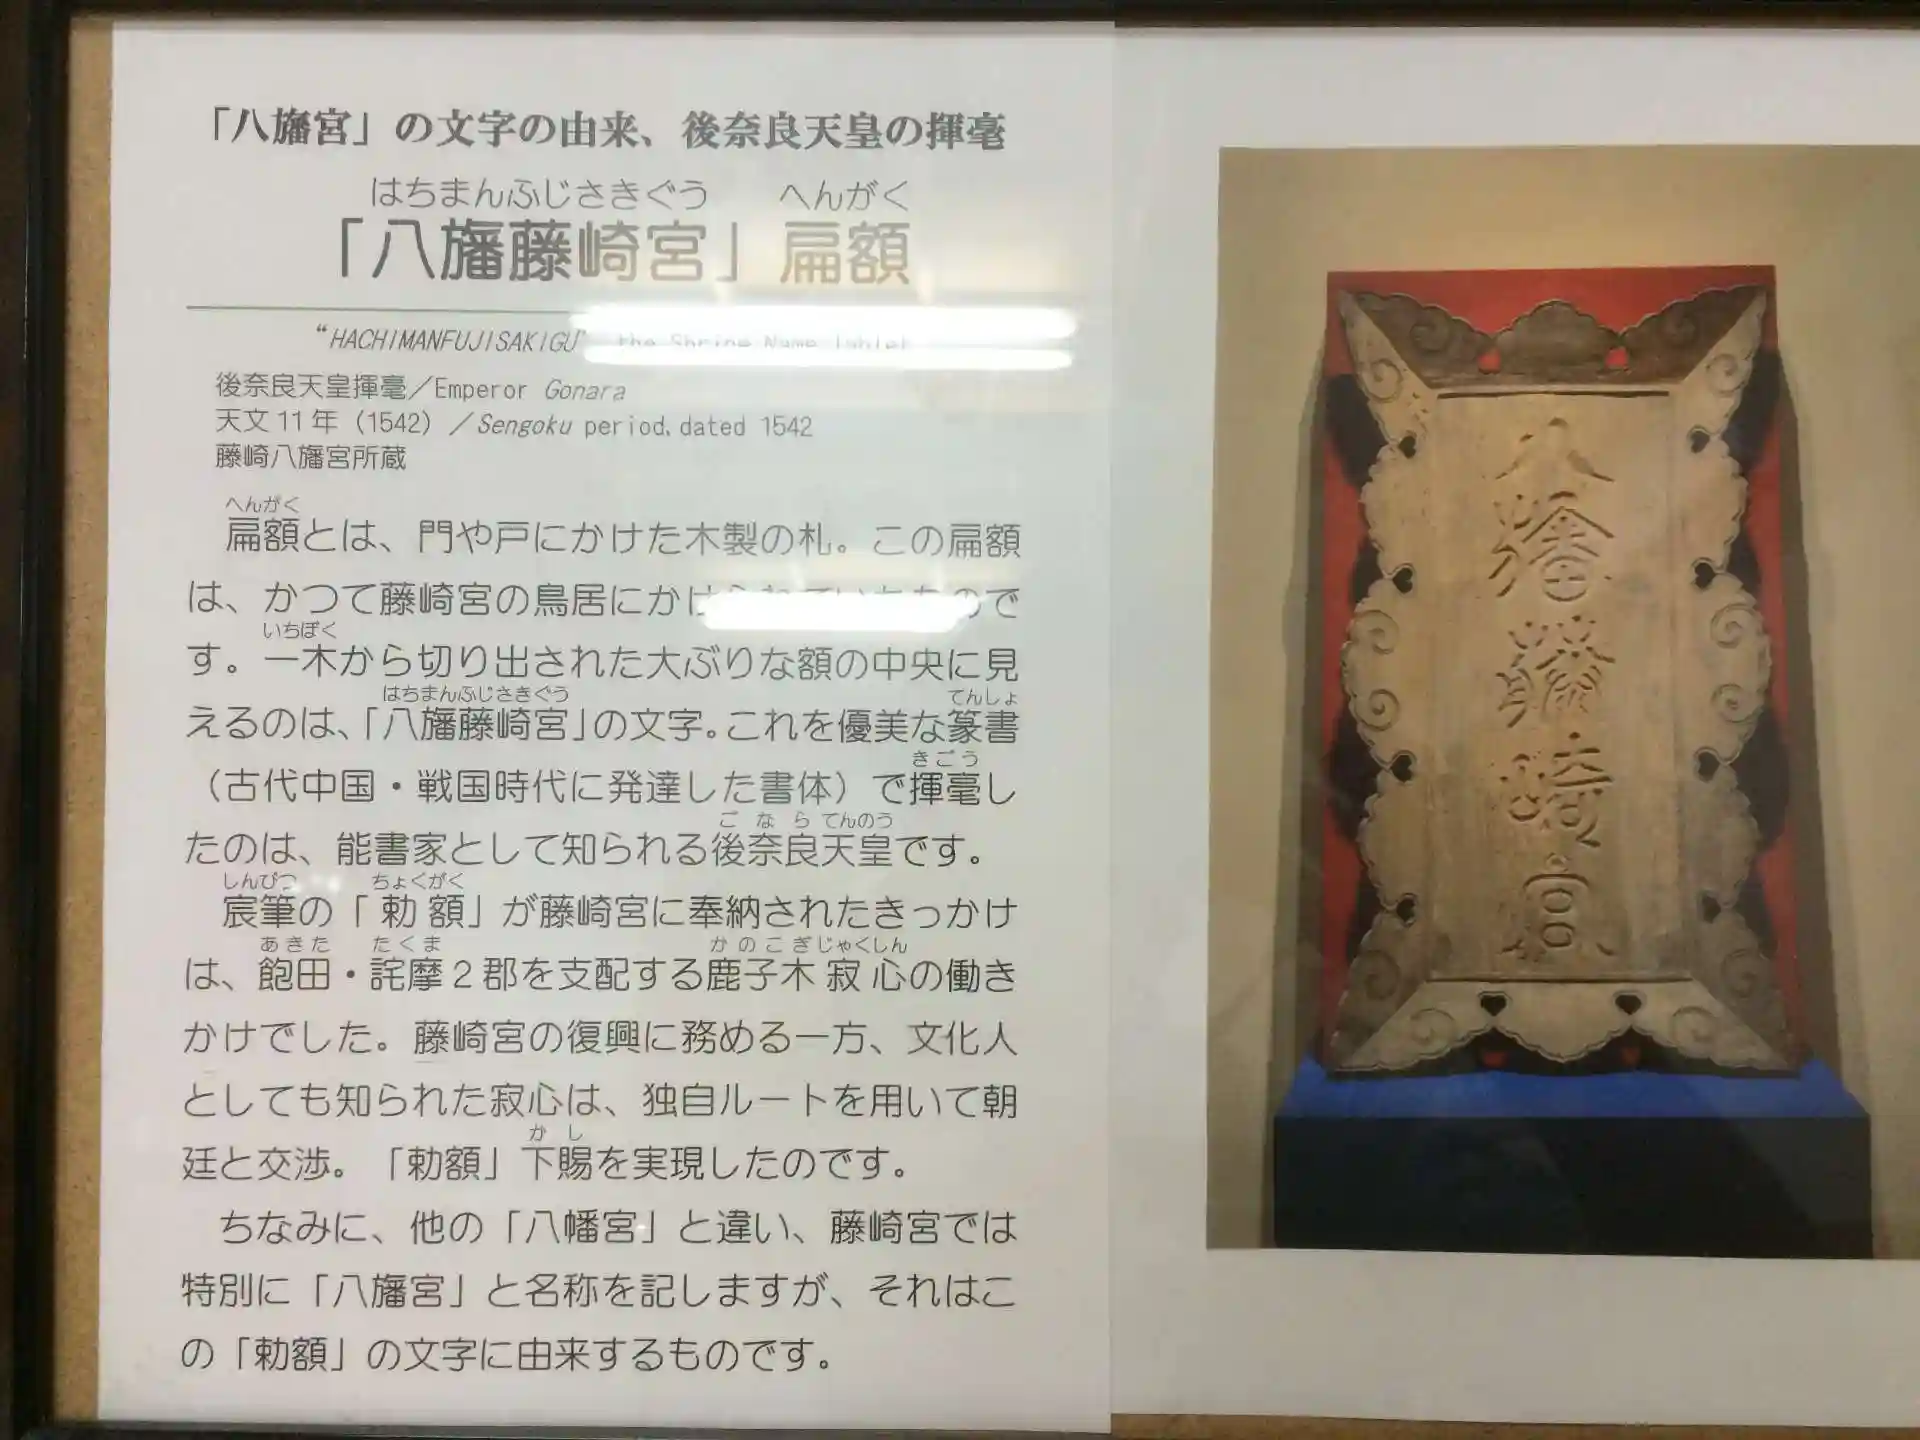 「八旛宮」の文字の由来、後奈良天皇の揮毫
はちまんふじさきぐう へんがく
「八旛藤崎宮」扁額
“HACHIMANFUJISAKIGU” the Shrine Name Tablet
後奈良天皇揮毫／Emperor Gonara
天文11年（1542）／Sengoku period, dated 1542
藤崎八旛宮所蔵
へんがく
扁額とは、門や戸にかけた木製の札。この扁額
は、かつて藤崎宮の鳥居にかけられていたもので
いちぼく
す。一木から切り出された大ぶりな額の中央に見
はちまんふじさきぐう てんしょ
えるのは、「八旛藤崎宮」の文字。これを優美な篆書
きごう
（古代中国・戦国時代に発達した書体）で揮毫し
ごならてんのう
たのは、能書家として知られる後奈良天皇です。
しんぴつ ちょくがく
宸筆の「勅額」が藤崎宮に奉納されたきっかけ
あきた たくま かのこぎじゃくしん
は、飽田・詫摩２郡を支配する鹿子木寂心の働き
かけでした。藤崎宮の復興に務める一方、文化人
としても知られた寂心は、独自ルートを用いて朝
かし
廷と交渉。「勅額」下賜を実現したのです。
ちなみに、他の「八幡宮」と違い、藤崎宮では
特別に「八旛宮」と名称を記しますが、それはこ
の「勅額」の文字に由来するものです。
八旛藤崎宮